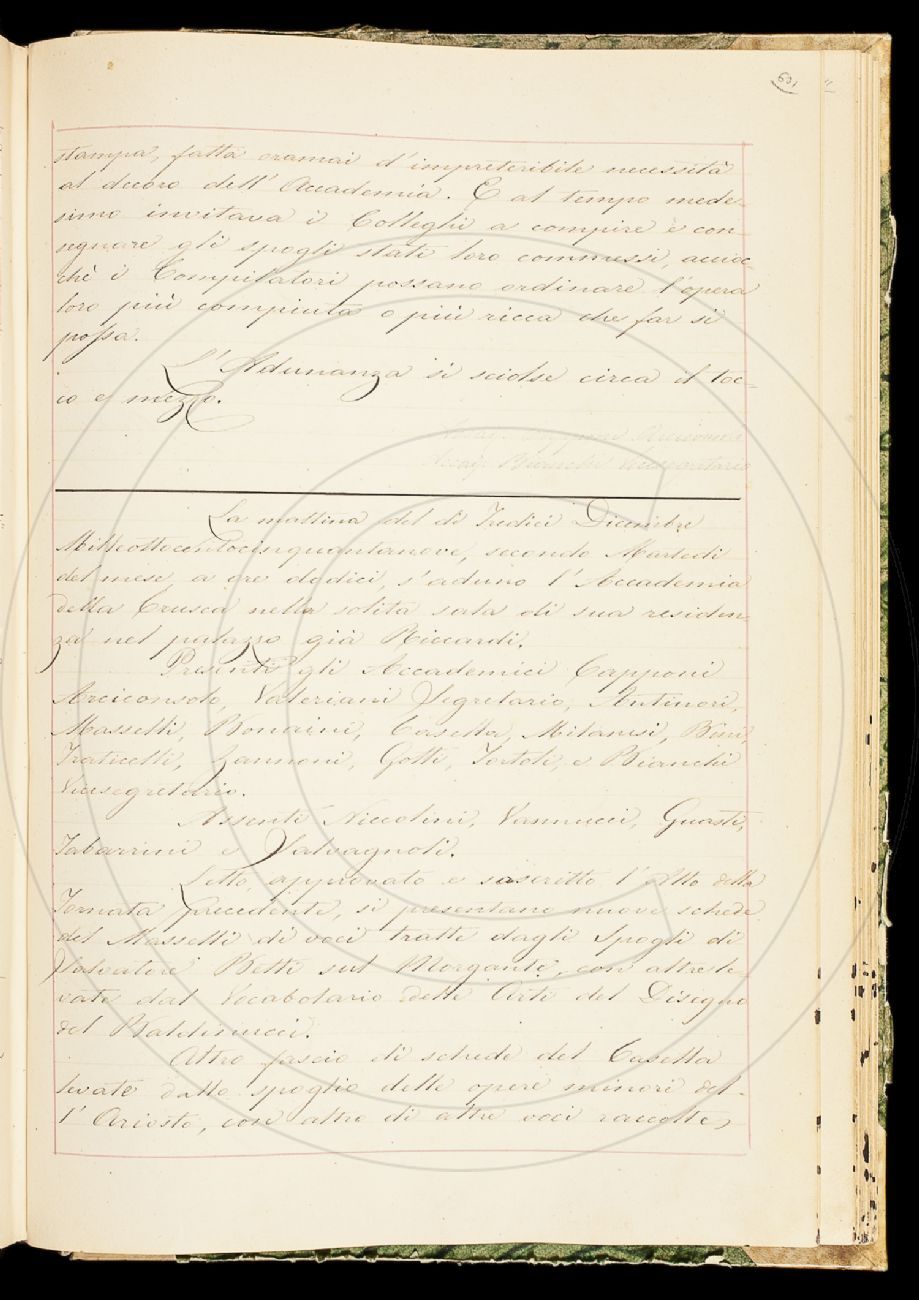 601
stampa, fatta oramai d'impreteribile necessità
al decoro dell'Accademia. E al tempo mede-
simo invitava i Colleghi a compire e con-
segnare gli spogli stati loro commessi, accioc-
chè i Compilatori possano ordinare l'opera
loro più compiuta e più ricca che far si
possa.
L'Adunanza si sciolse circa il toc-
co e mezzo.
Arciconsolo
Bianchi Vicesegretario
La mattina del dì Tredici Dicembre
Milleottocentocinquantanove, secondo Martedì
del mese, a ore dodici, s'adunò l'Accademia
della Crusca nella solita sala di sua residen-
za nel palazzo già Riccardi.
Presenti gli Accademici Capponi
Arciconsolo, Valeriani Segretario, Antinori,
Masselli, Bonaini, Casella, Milanesi, Bini,
Fraticelli, Zannoni, Gotti, Tortoli, e Bianchi
Vicesegretario.
Assenti Niccolini, Vannucci, Guasti,
Tabarrini e Salvagnoli.
Letto, approvato e soscritto l'Atto della
Tornata precedente, si presentano nuove schede
del Masselli di voci tratte dagli Spogli di
Salvatore Betti sul Morgante, con altre le-
vate dal Vocabolario delle Arti del Disegno
del Baldinucci.
Altro fascio di schede del Casella
levate dallo spoglio delle opere minori del-
l'Ariosto, con altro di altre voci raccolte,